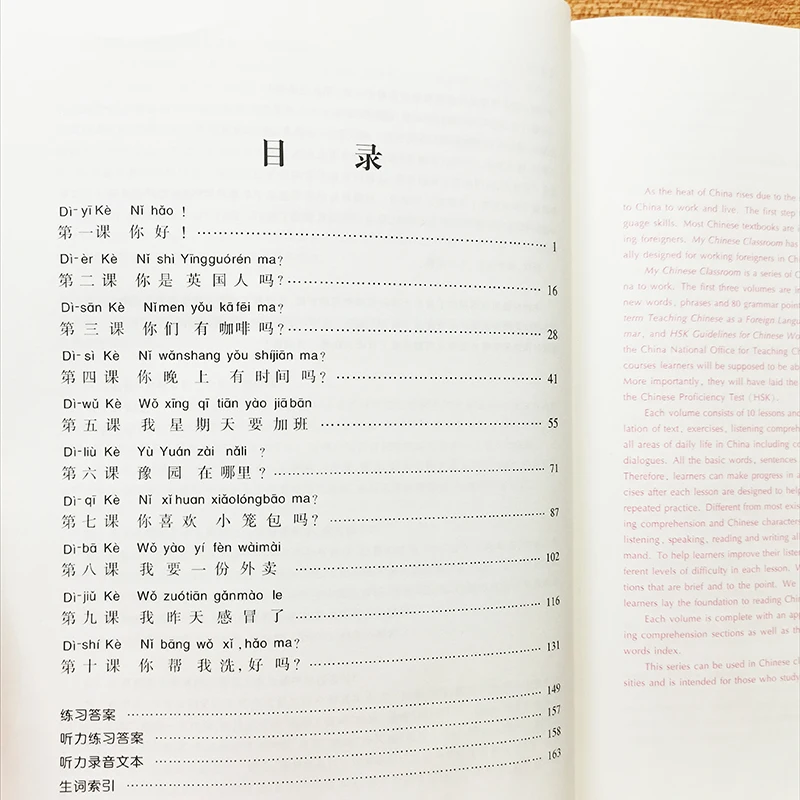 目 录
Dì-yī Kè Nǐ hǎo！
第一课 你好！ 1
Dì-èr Kè Nǐ shì Yīngguórén ma？
第二课 你是英国人吗？ 16
Dì-sān Kè Nǐmen yǒu kāfēi ma？
第三课 你们有咖啡吗？ 28
Dì-sì Kè Nǐ wǎnshang yǒu shíjiān ma？
第四课 你晚上有时间吗？ 41
Dì-wǔ Kè Wǒ xīng qī tiān yào jiābān
第五课 我星期天要加班 55
Dì-liù Kè Yù Yuán zài nǎli ？
第六课 豫园在哪里？ 71
Dì-qī Kè Nǐ xǐhuan xiǎolóngbāo ma？
第七课 你喜欢小笼包吗？ 87
Dì-bā Kè Wǒ yào yí fèn wàimài
第八课 我要一份外卖 102
Dì-jiǔ Kè Wǒ zuótiān gǎnmào le
第九课 我昨天感冒了 116
Dì-shí Kè Nǐ bāng wǒ xǐ，hǎo ma？
第十课 你帮我洗，好吗？ 131
练习答案 149
听力练习答案 157
听力录音文本 158
生词索引 163
As the heat of China rises due to the
to China to work and live. The first step
guage skills. Most Chinese textbooks are
ing foreigners. My Chinese Classroom has
ally designed for working foreigners in Ch
My Chinese Classroom is a series of C
na to work. The first three volumes are in
new words, phrases and 80 grammar point
term Teaching Chinese as a Foreign Langu
mar, and HSK Guidelines for Chinese Wo
the China National Office for Teaching Ch
courses learners will be supposed to be ab
More importantly, they will have laid the
the Chinese Proficiency Test (HSK).
Each volume consists of 10 lessons and
lation of text, exercises, listening comprehe
all areas of daily life in China including c
dialogues. All the basic words, sentences
Therefore, learners can make progress in a
cises after each lesson are designed to help
repeated practice. Different from most exis
ing comprehension and Chinese characters
listening, speaking, reading and writing all
mand. To help learners improve their listen
ferent levels of difficulty in each lesson. W
tions that are brief and to the point. We
learners lay the foundation to reading Chin
Each volume is complete with an app
ing comprehension sections as well as th
words index.
This series can be used in Chinese cl
sities and is intended for those who study